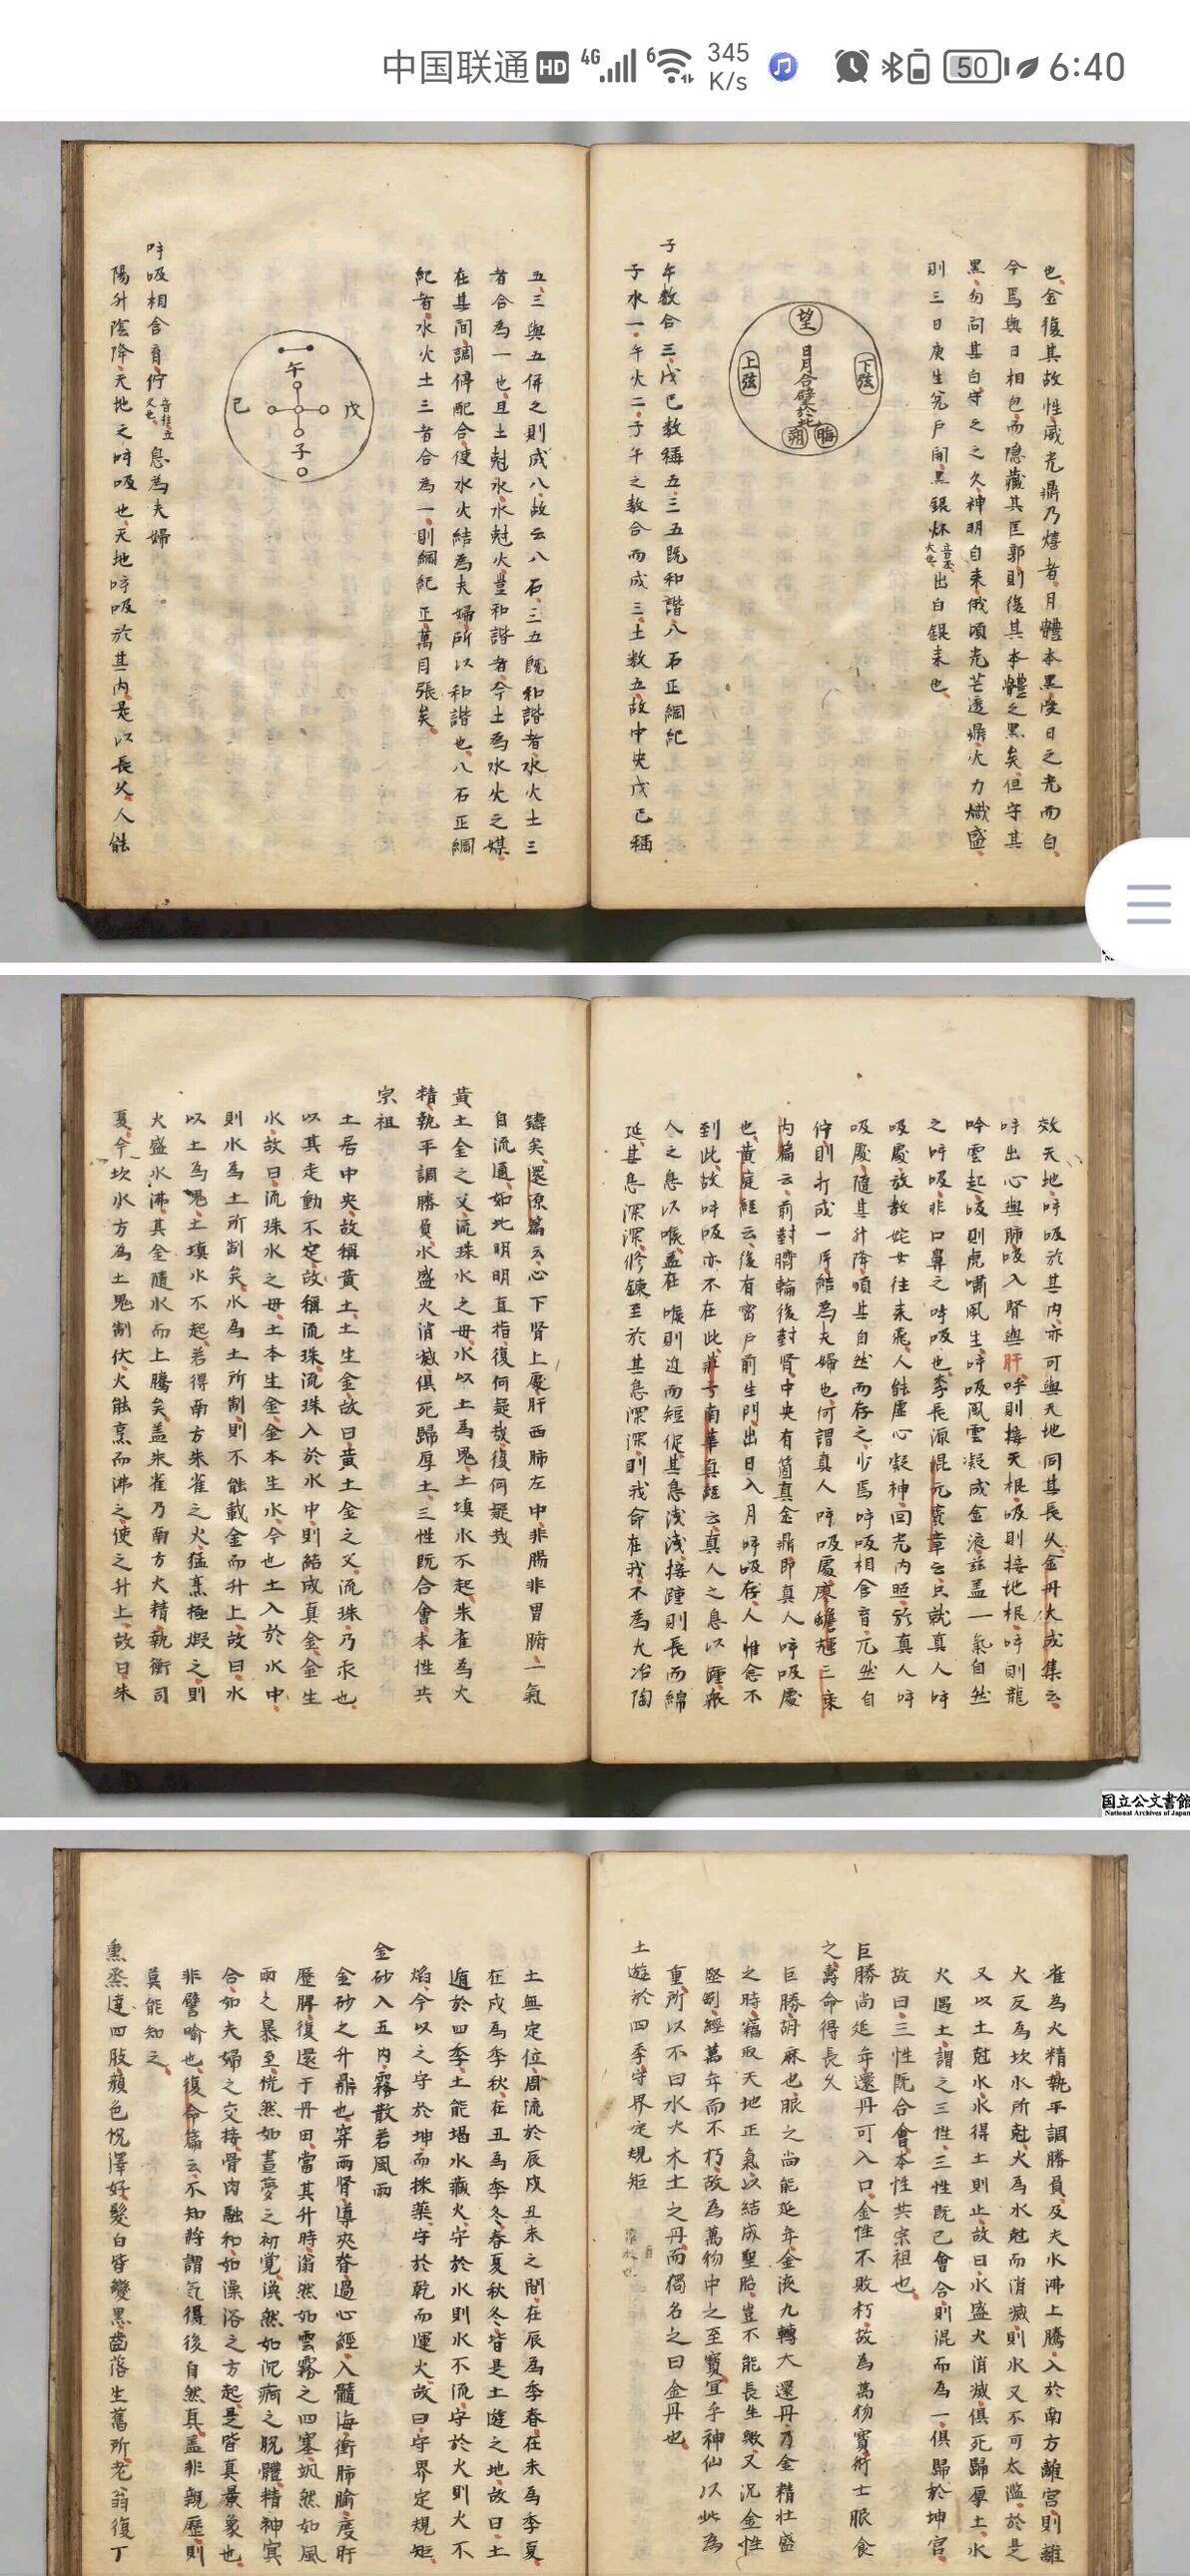 中国联通 HD 4G 6 345 K/s 50 6:40
也金復其故性威光鼎乃熺者月體本黑受日之光而白
今焉與日相包而隱藏其匡郭則復其本體之黑矣但守其
黑勿問其白守之之久神明自来俄頃光芒透鼎火力熾盛
則三日庚生兊戶開黑銀炑出白銀来也
望
上弦
下弦
日月合璧於此
朔
晦
子午數合三戊已數稱五三五既和諧八石正綱紀
子水一午火二子午之數合而成三土數五故中央戊已稱
五三與五併之則成八故云八石三五既和諧者水火土三
者合為一也且土尅水水尅火豈和諧者今土為水火之媒
在其間調停配合使水火結為夫婦所以和諧也八石正綱
紀者水火土三者合為一則綱紀正萬目張矣
午
己
戊
子
呼吸相含育佇息為夫婦
陽升陰降天地之呼吸也天地呼吸於其内是以長久人能
效天地呼吸於其内亦可與天地同其長久金丹大成集云
呼出心與肺吸入腎與肝呼則接天根吸則接地根呼則龍
吟雲起吸則虎嘯風生呼吸風雲凝成金液茲盖一氣自然
之呼吸非口鼻之呼吸也李長源混元寳章云只就真人呼
吸處放教姹女往来飛人能虚心凝神回光内照於真人呼
吸處隨其升降順其自然而存之少焉呼吸相含育元然自
佇則打成一片結為夫婦也何謂真人呼吸處廖蟾輝三乗
内篇云前對臍輪後對腎中央有箇真金鼎即真人呼吸處
也黄庭經云後有密戶前生門出日入月呼吸存人惟念不
到此故呼吸亦不在此莊子南華真經云真人之息以踵衆
人之息以喉盖在喉則近而短促其息淺淺接踵則長而綿
延其息深深修鍊至於其息深深則我命在我不為大冶陶
鑄矣還源篇云心下腎上處肝西肺左中非腸非胃腑一氣
自流通如此明明直指復何疑哉復何疑哉
黄土金之父流珠水之母水以土為鬼土填水不起朱雀為火
精執平調勝負水盛火消滅俱死歸厚土三性既合會本性共
宗祖
土居中央故稱黄土土生金故曰黄土金之父流珠乃汞也
以其走動不定故稱流珠流珠入於水中則結成真金金生
水故曰流珠水之母土本生金金本生水今也土入於水中
則水為土所制矣水為土所制則不能載金而升上故曰水
以土為鬼土填水不起若得南方朱雀之火猛烹極煅之則
火盛水沸其金隨水而上騰矣盖朱雀乃南方火精執衡司
夏今坎水方為土鬼制伏火能烹而沸之使之升上故曰朱
雀為火精執平調勝負及夫水沸上騰入於南方離宫則離
火反為坎水所尅火為水尅而消滅則水又不可太濫於是
又以土尅水水得土則止故曰水盛火消滅俱死歸厚土水
火遇土謂之三性三性既已會合則混而為一俱歸於坤宫
故曰三性既合會本性共宗祖也
巨勝尚延年還丹可入口金性不敗朽故為萬物寳術士服食
之壽命得長久
巨勝胡麻也服之尚能延年金液九轉大還丹乃金精壯盛
之時竊取天地正氣以結成聖胎豈不能長生歟又況金性
堅剛經萬年而不朽故為萬物中之至寳宜乎神仙以此為
重所以不曰水火木土之丹而獨名之曰金丹也
土遊於四季守界定規矩
土無定位周流於辰戌丑未之間在辰為季春在未為季夏
在戌為季秋在丑為季冬春夏秋冬皆是土遊之地故曰土
遊於四季土能堨水藏火守於水則水不流守於火則火不
焰今以之守於坤而採藥守於乾而運火故曰守界定規矩
金砂入五内霧散若風雨
金砂之升鼎也穿兩腎導夾脊過心經入髓海衝肺腧度肝
歷脾復還于丹田當其升時滃然如雲霧之四塞颯然如風
雨之暴至恍然如晝夢之初覺渙然如沉疴之脫體精神冥
合如夫婦之交接骨肉融和如澡浴之方起是皆真景象也
非譬喻也復命篇云不知將謂氣得後自然真盖非親歷則
莫能知之
熏蒸達四肢顔色悅澤好髮白皆變黑齒落生舊所老翁復丁
国立公文書館
National Archives of Japan